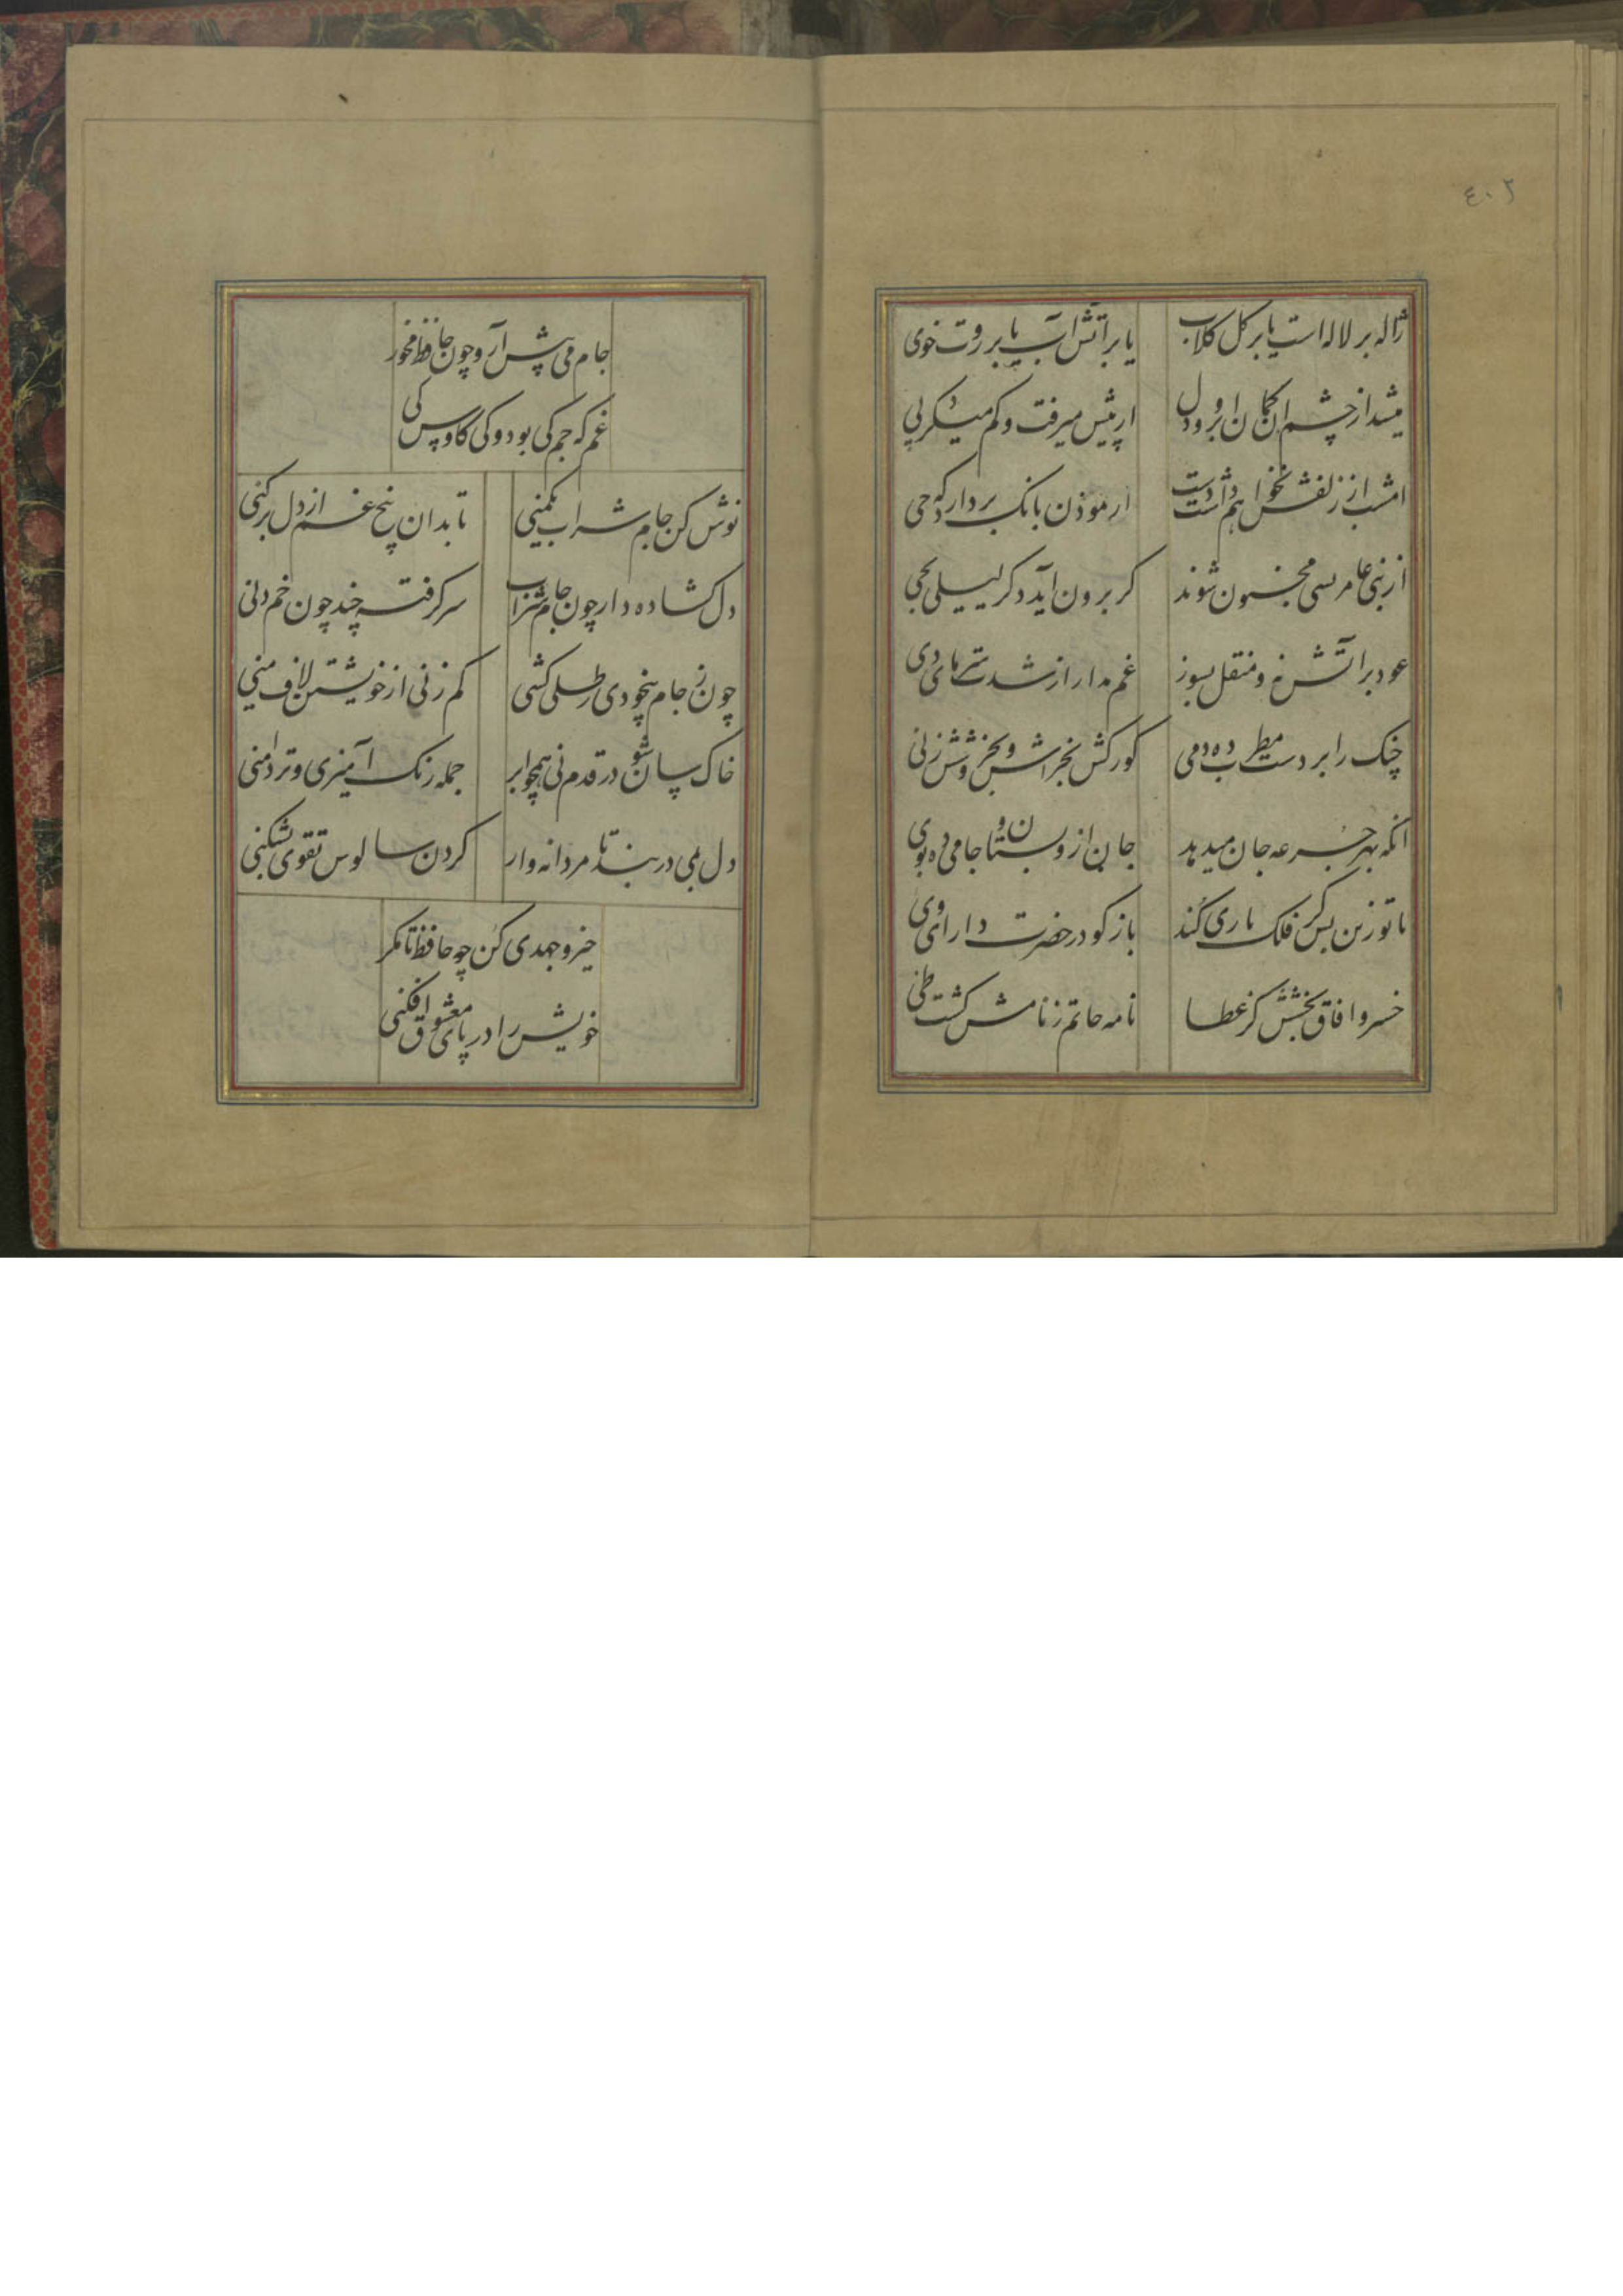 ٤٠٢
ژاله بر لاله است یا بر کل کلاب
یا بر آتش آب یا بر روت خوی
میشد از چشم آن کمان ابرو و دل
از پیش میرفت و کم میکرد پی
امشب از زلفش نخواهم داشت دست
ار موذن بانک بردارد که حی
از بنی عامر بسی مجنون شوند
کر برون آید دکر لیلی بحی
عود بر آتش نه و منقل بسوز
غم مدار از شدت سرمای دی
چنک را بر دست مطرب ده دمی
کو رکش بخراش و بخروشش ز نی
انکه بهر جرعه جان میدهد
جان از و بستان و جامی ده بوی
با تو زین پس کر فلک یاری کند
باز کو در حضرت دارای وی
خسرو افاق بخشش کز عطا
نامه حاتم ز نامش کشت طی
جام می پیش آر و چون حافظ مخور
غم که جم کی بود و کی کاوس کی
نوش کن جام شراب یکمنی
تا بدان بیخ غم از دل برکنی
دل کشاده دار چون جام شراب
سر کرفته چند چون خم دنی
چون ز جام بیخودی رطلی کشی
کم زنی از خویشتن لاف منی
خاک سان شو در قدم نی همچو ابر
جمله رنک آمیزی و تر دامنی
دل بمی در بند تا مردانه وار
کردن سالوس تقوی بشکنی
خیز و جهدی کن چو حافظ تا مکر
خویش را در پای معشوق افکنی